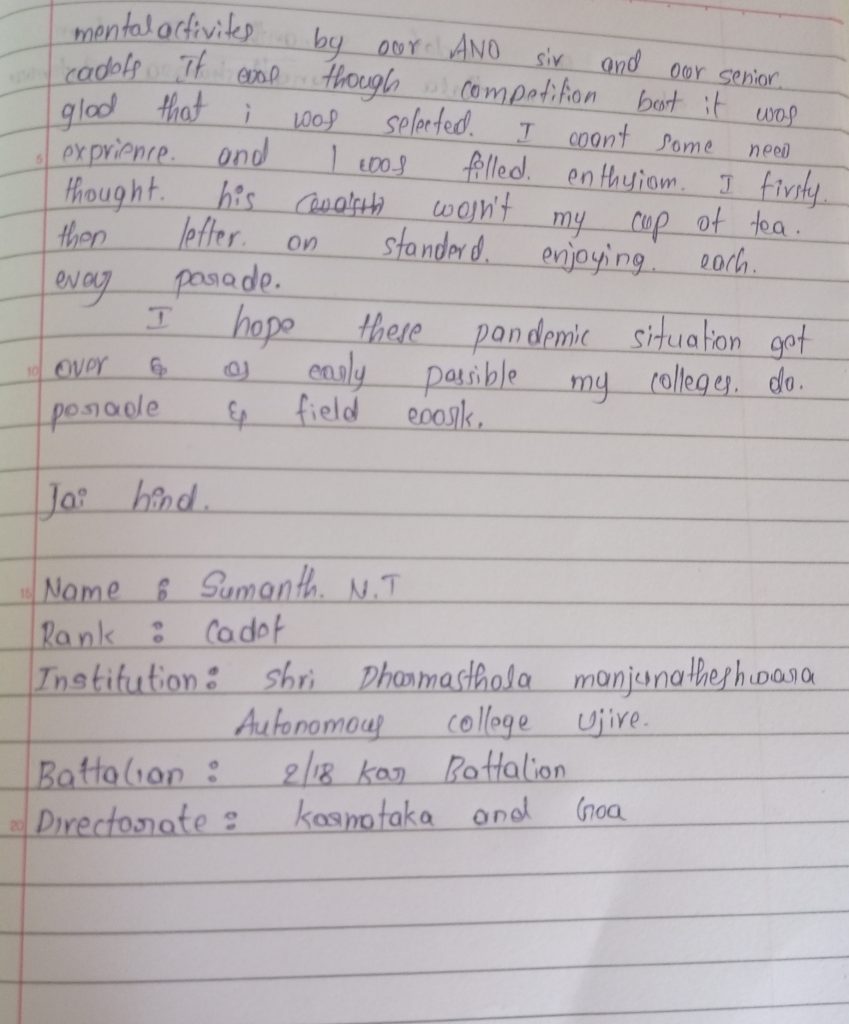 mental activites by our ANO sir and our senior.
cadets It was though competition but it was
glad that i was selected. I want some need
exprience. and I was filled. enthyiom. I firsty.
thought. his wasn't my cup of tea.
then letter. on standerd. enjoying. each.
evey parade.
I hope these pandemic situation got
over & as early possible my colleges. do.
parade & field work.
Jai hind.
Name : Sumanth. N.T
Rank : Cadet
Institution : Shri Dharmasthala manjunatheshwara
Autonomous college Ujire.
Battalian : 2/18 Kar Battalion
Directorate : Karnataka and Goa